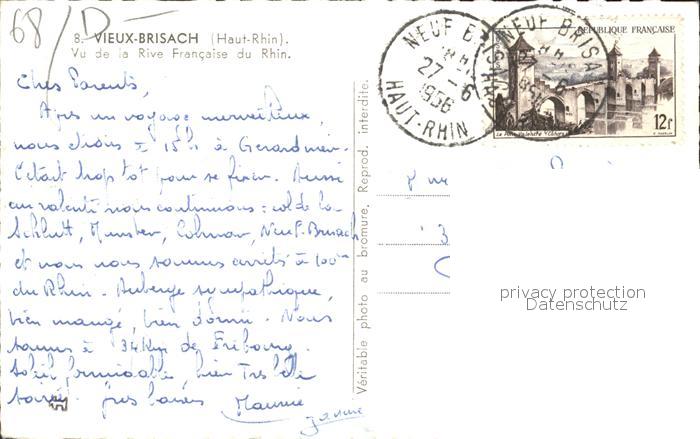 68/D-
8. VIEUX-BRISACH (Haut-Rhin).
Vu de la Rive Française du Rhin.
Chers Parents,
Après un voyage merveilleux,
nous étions à 15h à Gerardmer.
C'était trop tôt pour se fixer. Aussi
au ralenti nous continuons : col de la
Schlutt, Munster, Colmar, Neuf-Brisach
et nous nous sommes arrêtés à 100m
du Rhin. Auberge sympathique,
bien mangé, bien dormi. Nous
sommes à 34 Km de Fribourg.
Soleil formidable, bien
Maurice
Véritable photo au bromure. Reprod. interdite.
NEUF BRISACH
27-6
1956
HAUT-RHIN
NEUF BRISA
RÉPUBLIQUE FRANÇAISE
12f
privacy protection
Datenschutz